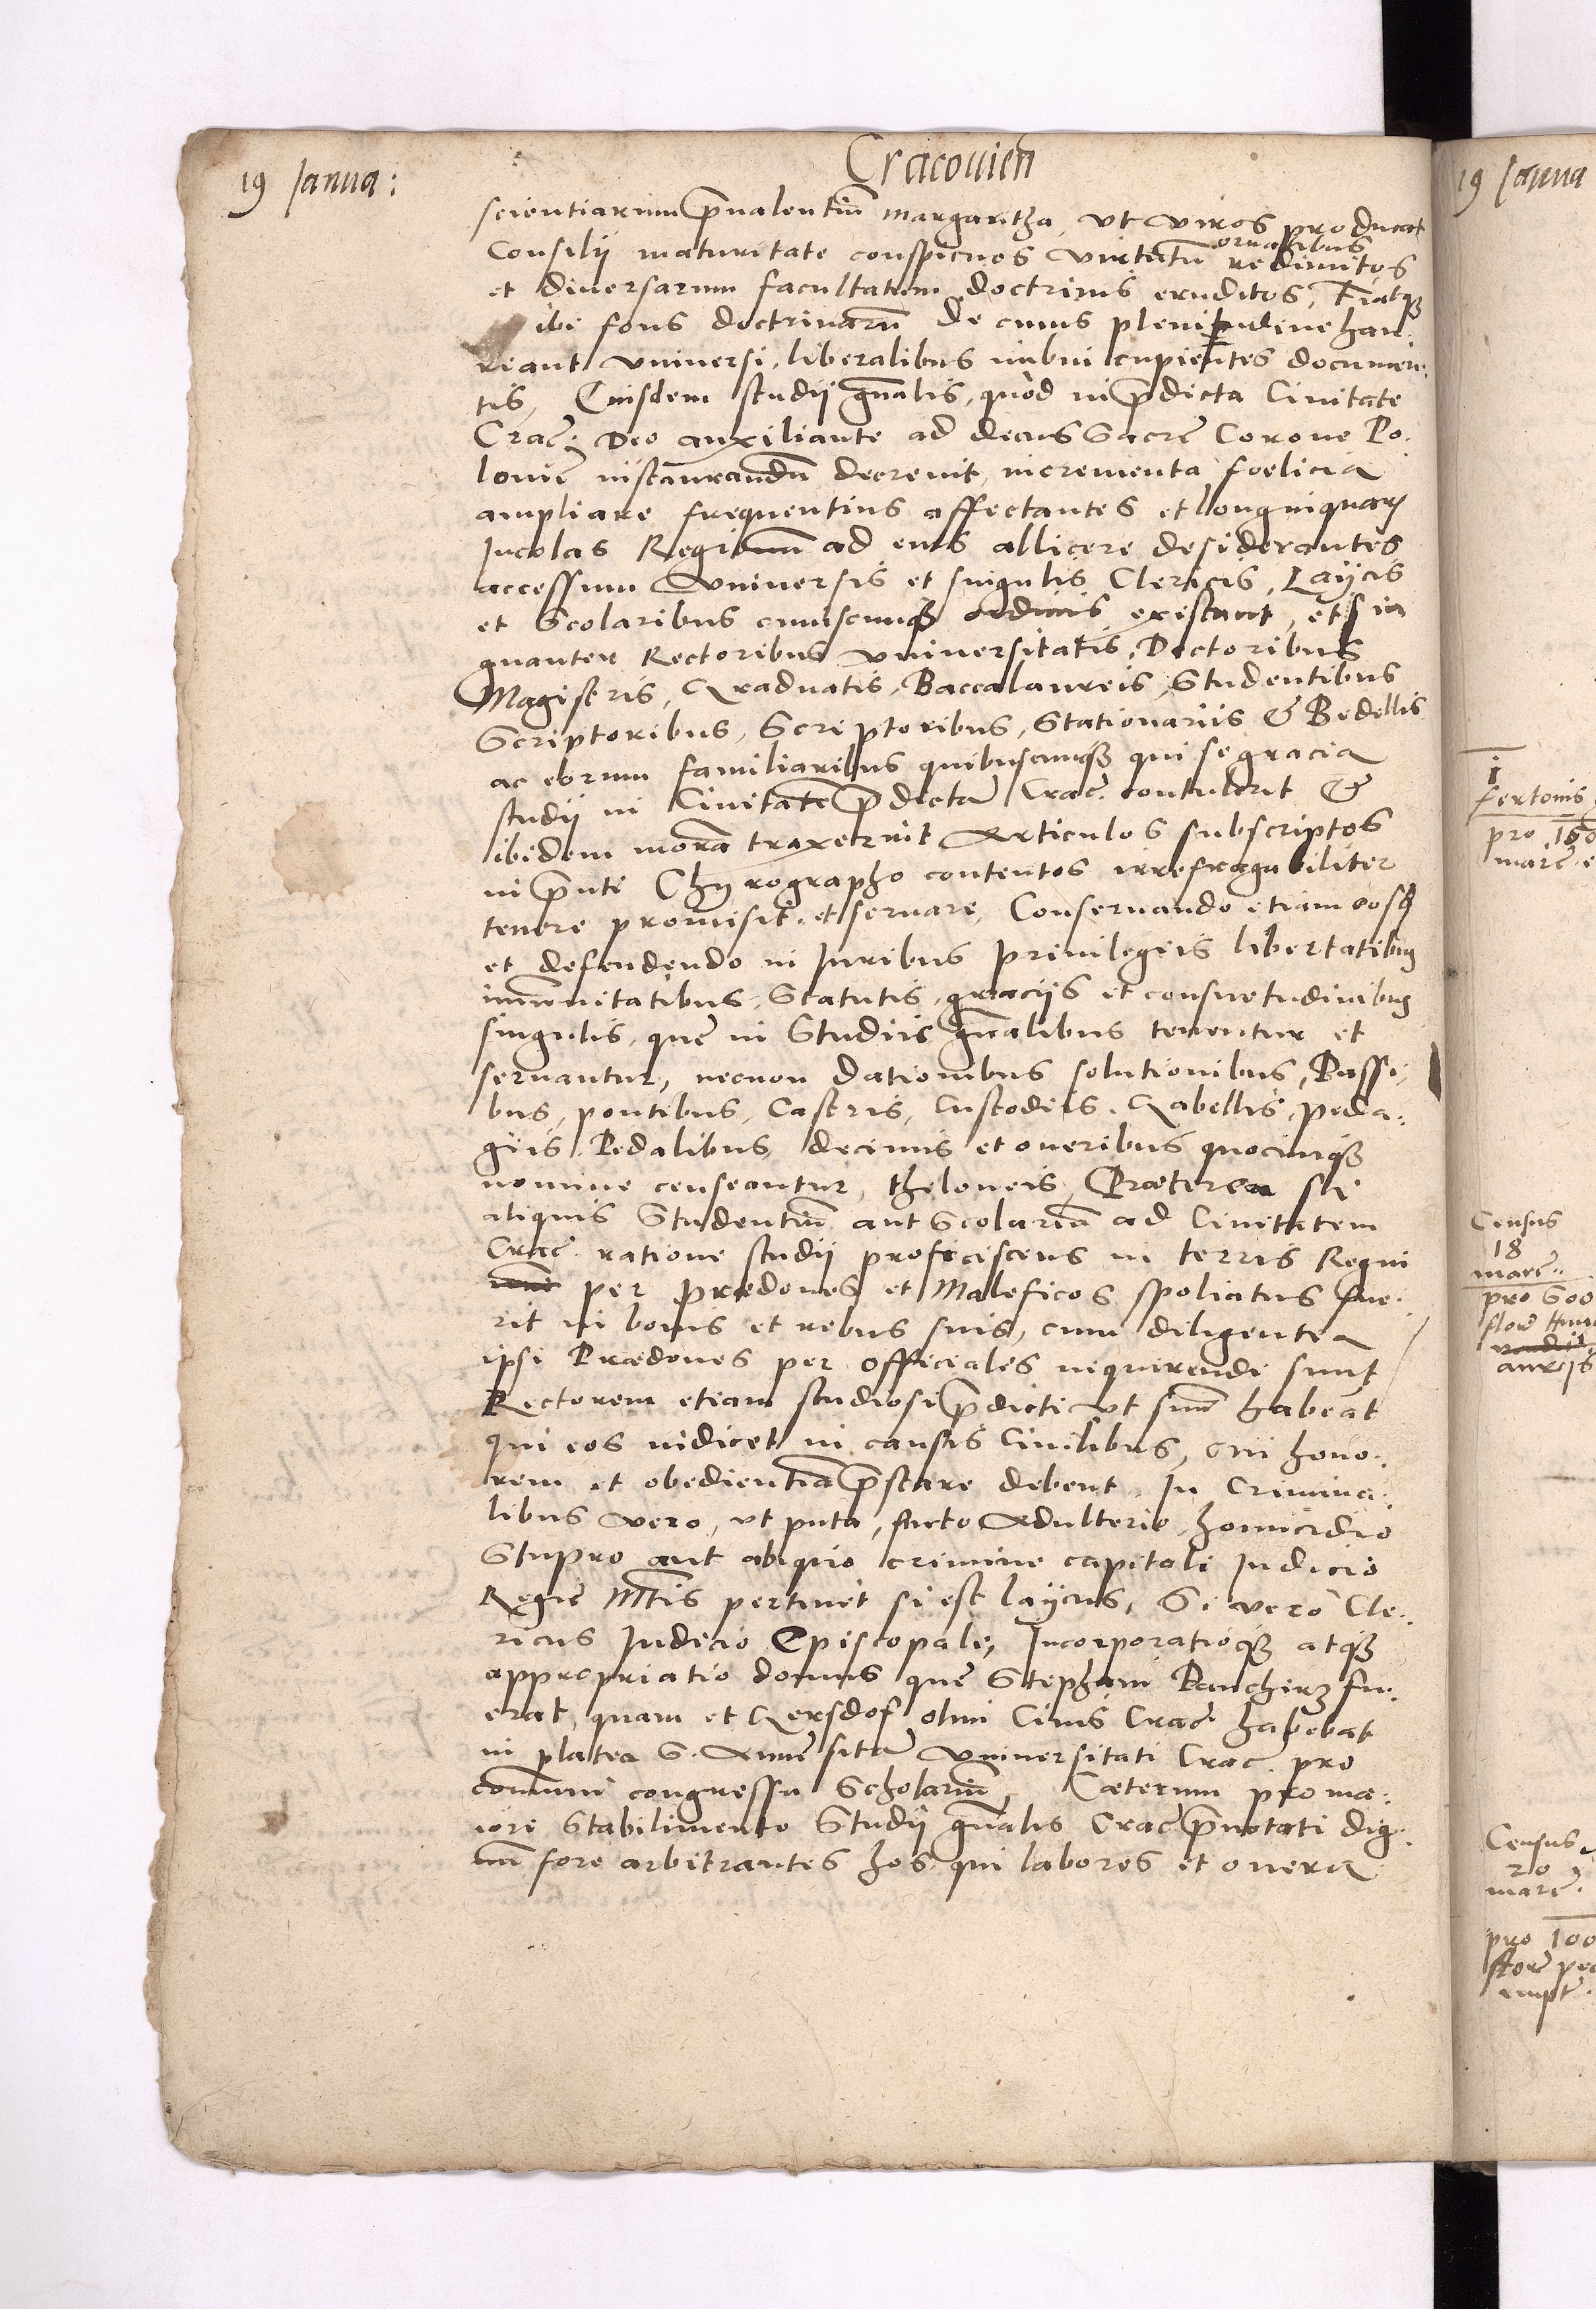 Cracouien
19 Janua:
scientiarum p̄ualentiū margaritha, vt viros producat
Consilij maturitate conspicuos virtutū ornatibus redimitos
et diuersarum facultatum doctrinis eruditos, Fiatq̃
ibi fons doctrinarū de cuius plenitudine hau.
riant vniuersi, liberalibus imbui cupientes documen:
tis, Eiusdem studij gn̄alis, quod in p̄dicta Ciuitate
Crac̃: Deo auxiliante ad decus Sacre Corone Po.
lonie instaurandū decreuit, incrementa foelicia
ampliare frequentius affectantes et longinquarū
Incolas Regionum ad eius allicere desiderantes
accessum vniuersis et singulis Clericis, Laycis
et Scolaribus cuiuscunq̃ ordinis existant, et sin
guanter Rectoribus vniuersitatis, Doctoribus
Magistris, Graduatis, Baccalaureis, Studentibus
Scriptoribus, Scriptoribus, Stationariis & Bedellis
ac eorum familiaribus quibuscunq̃ qui se gracia
studij in Ciuitatē p̄dictā Crac. contulerit &
ibidem morā traxerint Articulos subscriptos
in p̄nti Chyrographo contentos irrefragabiliter
tenere promisit, et seruare, Conseruando etiam eosq̃
et defendendo in Iuribus Priuilegiis libertatibus
immunitatibus, Statutis, graciis et consuetudinibus
singulis, que in Studiis gn̄alibus tenentur et
seruantur, necnon dationibus solutionibus, Passi,
bus, pontibus, Castris, Custodiis, Gabellis, peda.
giis Pedalibus, decimis et oneribus quocunq̃
nomine censeantur, theloneis, Praeterea si
aliquis Studentiū aut Scolariū ad Ciuitatem
Crac. ratione studij proficiscens in terris Regni
per praedones et Maleficos spoliatus fue.
rit in bonis et rebus suis, cum diligentea
ipsi Praedones per officiales inquirendi sunt
Rectorem etiam studiosi p̄dicti vt suū habeat
qui eos iudicet in causis Ciuilibus, cui hono.
rem et obedientiā p̄stare debent, In Crimina.
libus vero, vt puta, furto Adulterio, homicidio
Stupro aut aliquo crimine capitali Iudicio
Regie Mtis pertinet si est laycus, Si vero Cle.
ricus Iudicio Episcopali, Incorporatioq̃ atq̃
appropriatio domus que Stephani Panchirz fu.
erat, quam et Gersdof olim Ciuis Crac. habebat
in platea S. Anne sitā vniuersitati Crac. pro
communi congressu Scholariū, Caeterum pro ma.
iore Stabilimento Studij gn̄alis Crac p̄notati dig.
nū fore arbitrantes hos qui labores et onera
19 Janua
i
fertonis
pro 160
marc̃
Census
18
marc̃
pro 600
flore
aureis
Census
20
marc̃.
pro 100
flore